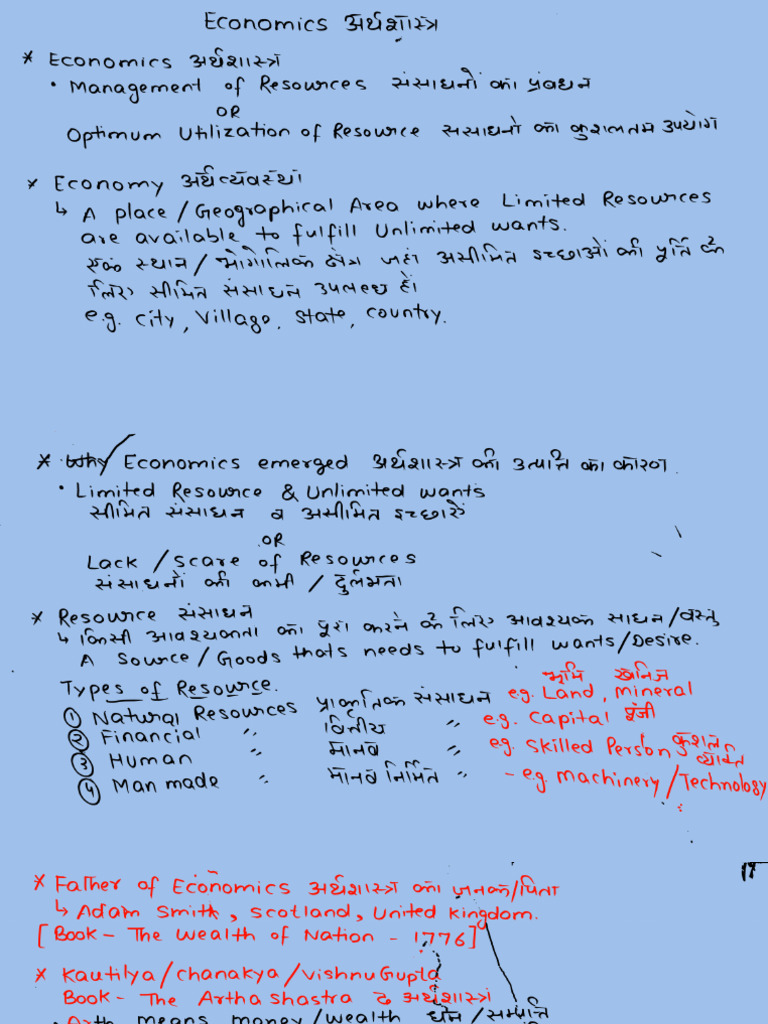 Economics अर्थशास्त्र
* Economics अर्थशास्त्र
• Management of Resources संसाधनों का प्रबंधन
OR
Optimum Utilization of Resource संसाधनों का कुशलतम उपयोग
* Economy अर्थव्यवस्था
↳ A place/Geographical Area where Limited Resources
are available to fulfill Unlimited wants.
एक स्थान/भौगोलिक क्षेत्र जहां असीमित इच्छाओं की पूर्ति के
लिए सीमित संसाधन उपलब्ध हो।
e.g. City, Village, State, Country.
* Why Economics emerged अर्थशास्त्र की उत्पत्ति का कारण
• Limited Resource & Unlimited wants
सीमित संसाधन व असीमित इच्छाएँ
OR
Lack/Scare of Resources
संसाधनों की कमी/दुर्लभता
* Resource संसाधन
↳ किसी आवश्यकता को पूरा करने के लिए आवश्यक साधन/वस्तु
A Source/Goods thats needs to fulfill wants/Desire.
Types of Resource.
① Natural Resources प्राकृतिक संसाधन eg. Land भूमि, mineral खनिज
② Financial " वित्तीय " eg. Capital पूंजी
③ Human " मानव " eg. Skilled Person कुशल व्यक्ति
④ Man made " मानव निर्मित " - eg. machinery/Technology
* Father of Economics अर्थशास्त्र का जनक/पिता
↳ Adam Smith, Scotland, United Kingdom.
[Book - The Wealth of Nation - 1776]
* Kautilya/Chanakya/Vishnu Gupta
Book - The Artha shastra द अर्थशास्त्र
• Arth means money/wealth धन/सम्पत्ति